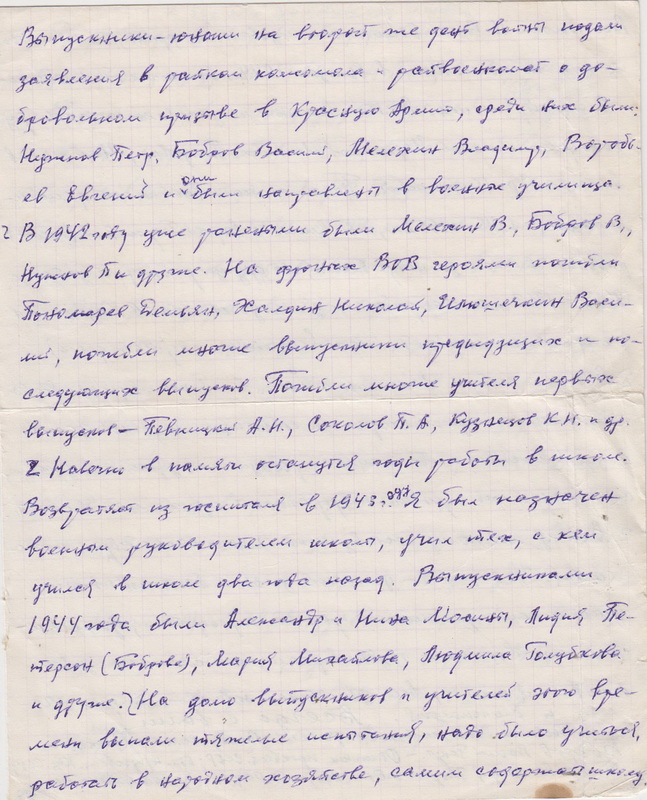 Выпускники-юноши на второй же день войны подали
заявления в райком комсомола и райвоенкомат о до-
бровольном призыве в Красную Армию, среди них были:
Нужнов Петр, Бобров Василий, Мележин Владимир, Воробь-
ев Евгений и они были направлены в военные училища.
В 1942 году уже ранеными были Мележин В., Бобров В.,
Нужнов П. и другие. На фронтах ВОВ героями погибли
Пономарев Демьян, Халдин Николай, Илюшечкин Васи-
лий, погибли многие выпускники предыдущих и по-
следующих выпусков. Погибли многие учителя первых
выпусков – Певницкий А.Н., Соколов П.А, Кузнецов К.Н. и др.
Навечно в памяти останутся годы работы в школе.
Возвратясь из госпиталя в 1943 году Я был назначен
военным руководителем школы, учил тех, с кем
учился в школе два года назад. Выпускниками
1944 года были Александр и Нина Мосины, Лидия Пе-
терсон (Боброва), Мария Михайлова, Людмила Голубкова
и другие. На долю выпускников и учителей этого вре-
мени выпали тяжелые испытания, надо было учиться,
работать в народном хозяйстве, самим содержать школу.